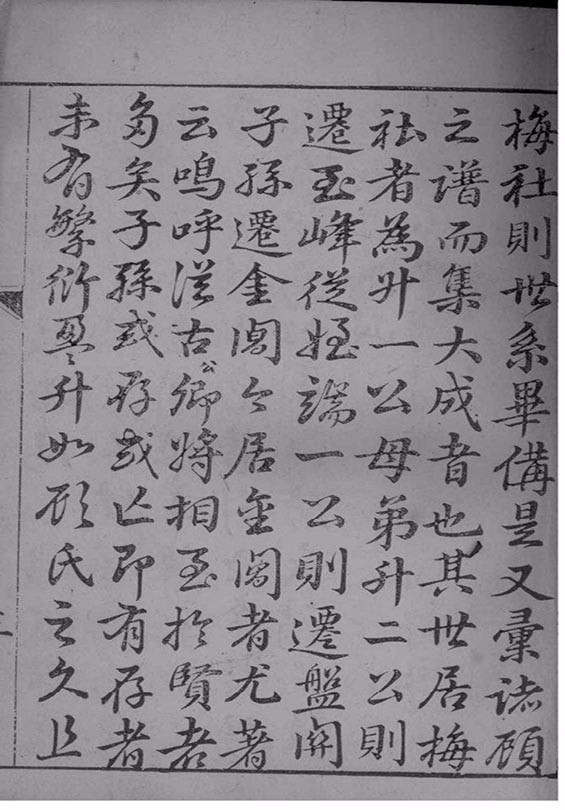 梅社則世系畢備是又彙諸顧
之譜而集大成者也其世居梅
社者為升一公母弟升二公則
遷玉峰從姪端一公則遷盤開
子孫遷金閶今居金閶者尤著
云嗚呼從古公卿將相至於賢者
多矣子孫或存或亡即有存者
未有繁衍盈升如顧氏之久且